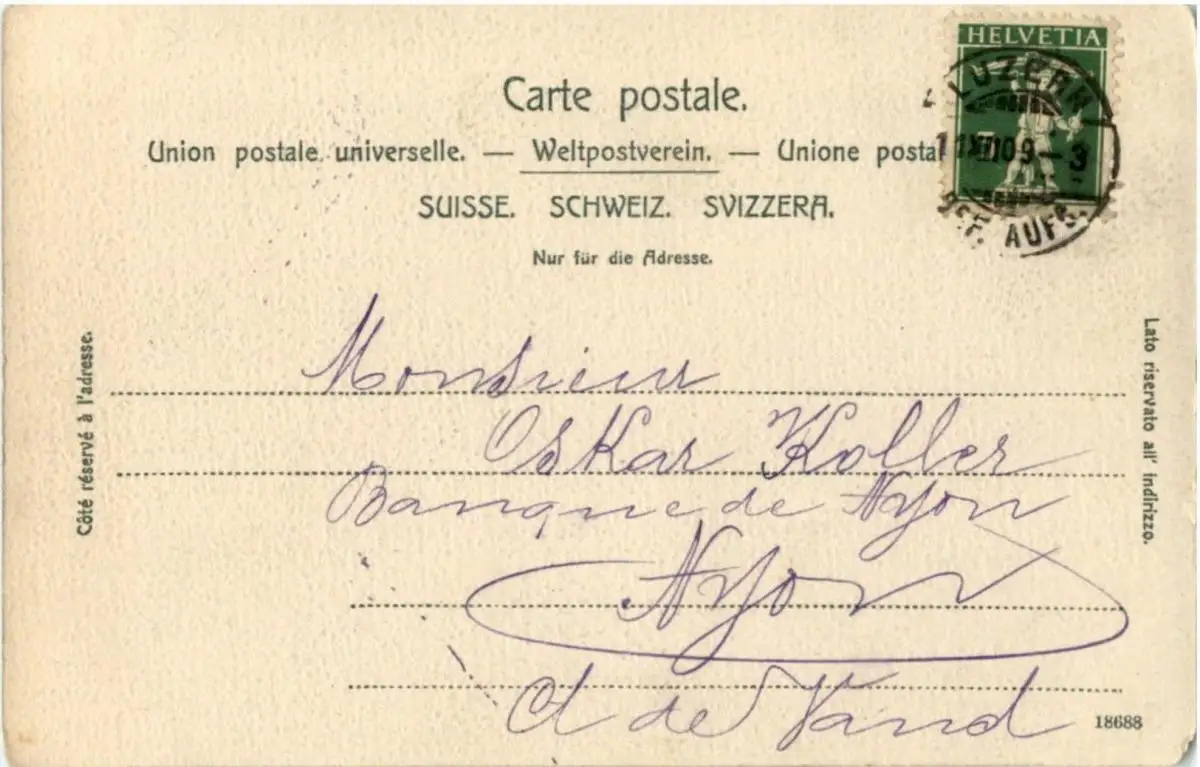 Carte postale.
Union postale universelle. — Weltpostverein. — Unione postal
SUISSE. SCHWEIZ. SVIZZERA.
Nur für die Adresse.
HELVETIA
LUZERN
09 – 3
AUFG.
Côté réservé à l'adresse.
Lato riservato all' indirizzo.
Monsieur
Oskar Koller
Banque de Nyon
Nyon
Ct de Vaud
18688